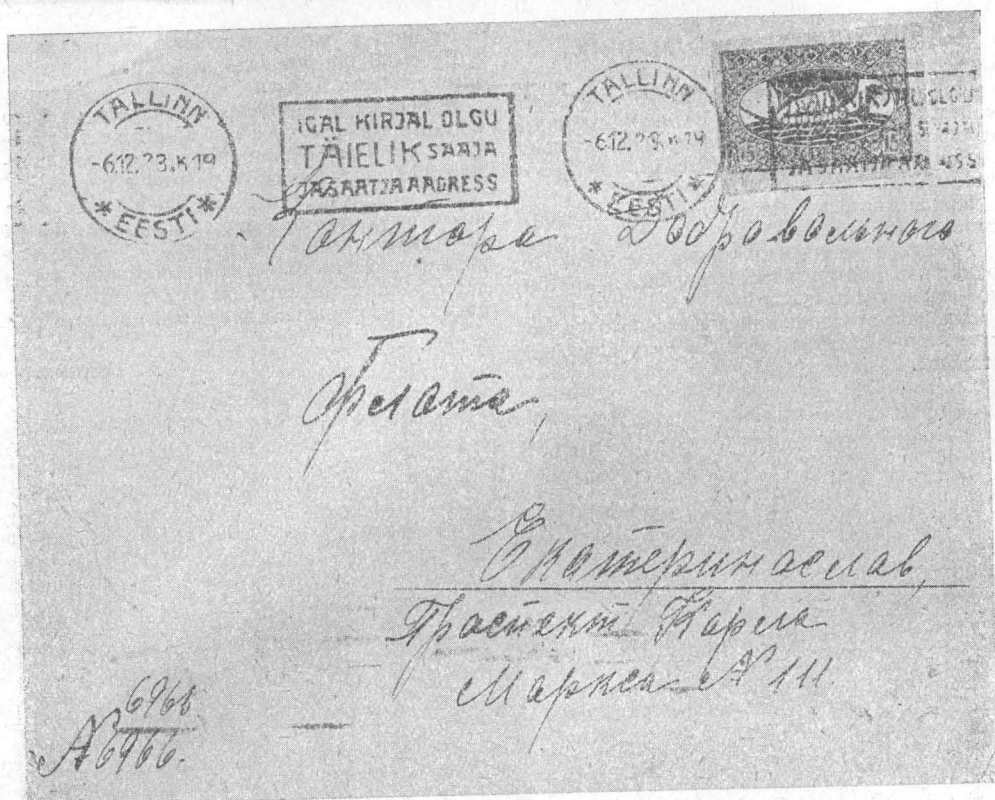 TALLINN
-6.12.23.K19
* EESTI *
IGAL KIRJAL OLGU
TÄIELIK SAAJA
JA SAATJA AADRESS
TALLINN
-6.12.23.K19
* EESTI *
OLGU
SAAJA
JA SAATJA AADRESS
15 15
Контора Добровольного
Флота,
Екатеринослав,
Проспект Карла
Маркса № 111.
6965
№ 6966.